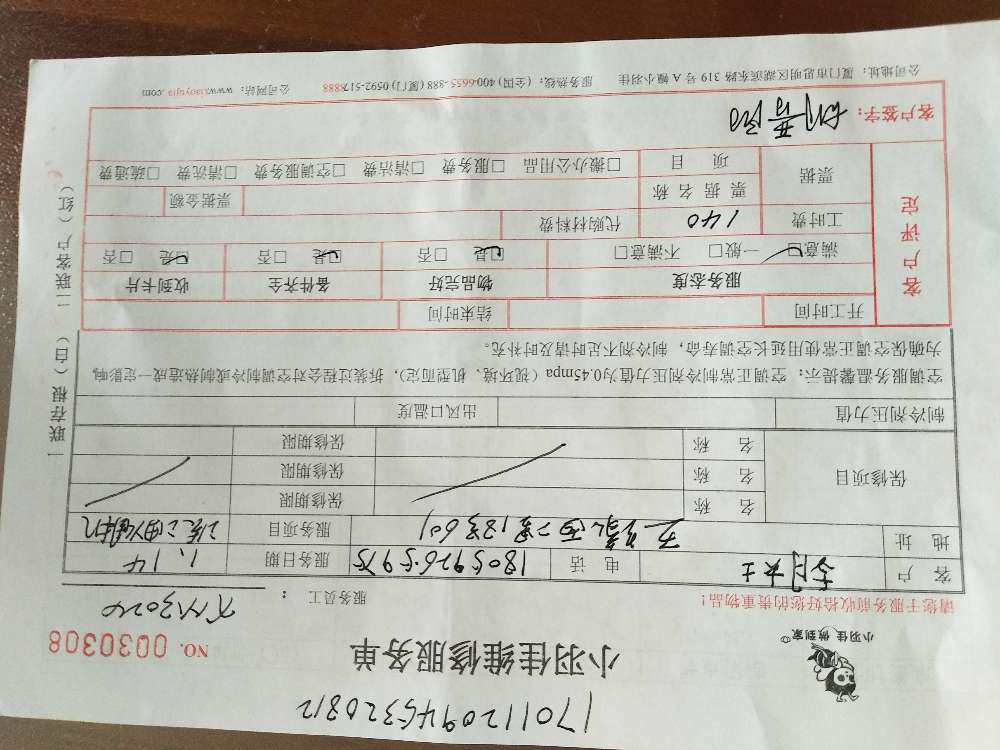 17011209456320812
小羽佳 做到家
小羽佳维修服务单
NO. 0030308
请您于服务前收拾好您的贵重物品!
服务员工: XM3024
客 户 女士 电 话 18059265975 服务日期 1.14
地 址 服务项目
保修项目 名 称 保修期限
名 称 保修期限
名 称 保修期限
制冷剂压力值 出风口温度
空调服务温馨提示: 空调正常制冷剂压力值为0.45mpa (视环境、机型而定), 拆装过程会对空调制冷或制热造成一定影响,
为确保空调正常使用延长空调寿命, 制冷剂不足时请及时补充。
客户评定
开工时间 结束时间
服务态度 物品完好 备件齐全 收到卡片
满意□ 一般□ 不满意□ □是 □否 □是 □否 □是 □否
工时费 140 代购材料费
票据 票据名称 票据金额
项 目 □搬办公用品 □服务费 □清洁费 □空调服务费 □清洗费 □疏通费
客户签字:
公司地址: 厦门市思明区湖滨东路 319 号 A 幢小羽佳 服务热线: (全国) 400-6655-888 (厦门) 0592-5178888 公司网站: www.xiaoyujia.com
一联存根 (白) 二联客户 (红)